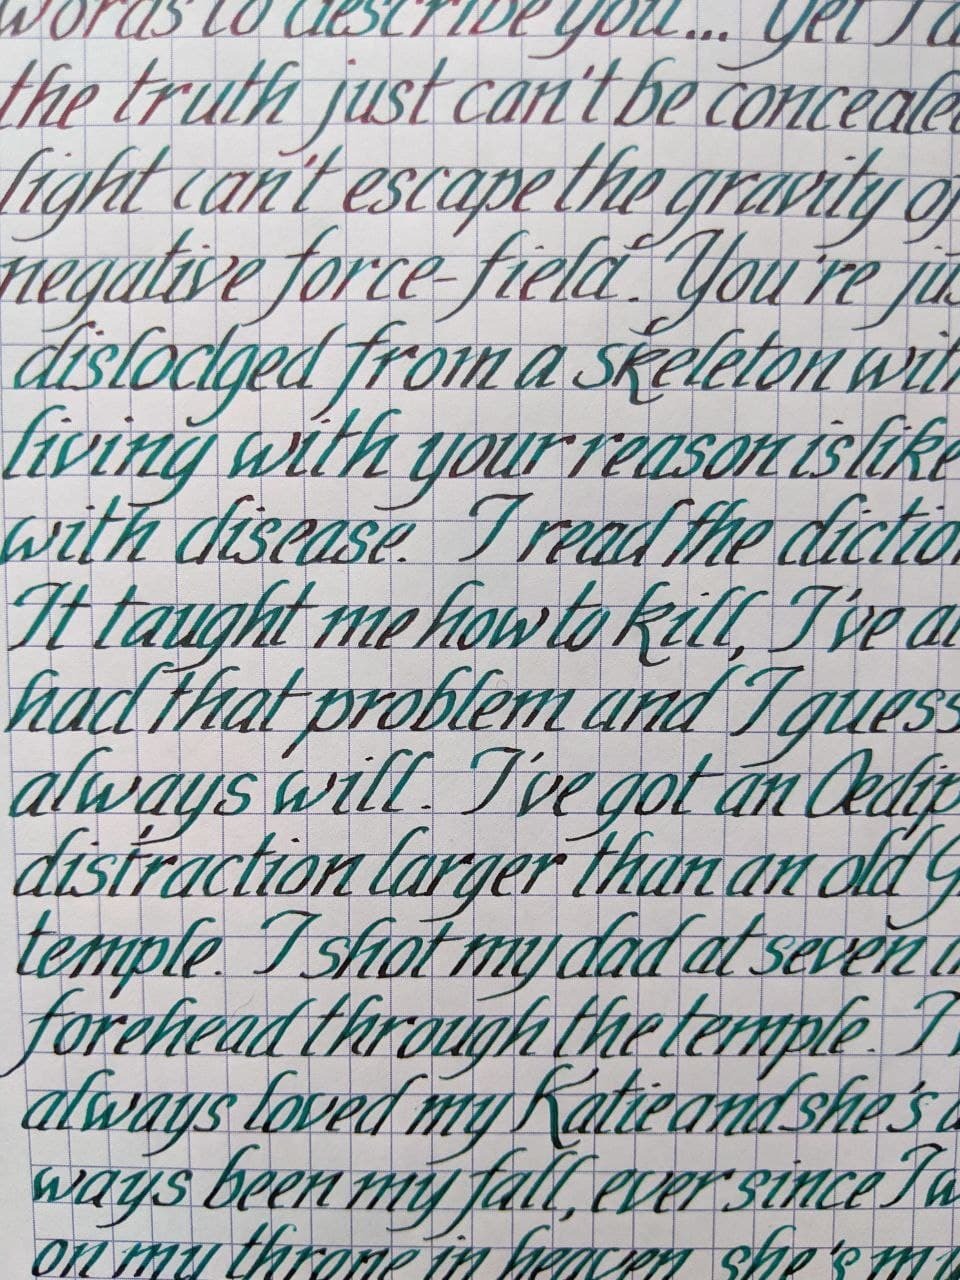 words to describe you... Yet I
the truth just can't be conceale
light can't escape the gravity of
negative force-field. You're jus
dislodged from a skeleton wit
living with your reason is like
with disease. I read the dictio
It taught me how to kill, I've al
had that problem and I guess
always will. I've got an Oedip
distraction larger than an old G
temple. I shot my dad at seven
forehead through the temple. I
always loved my Katie and she's a
ways been my fall, ever since I w
on my throne in heaven she's my